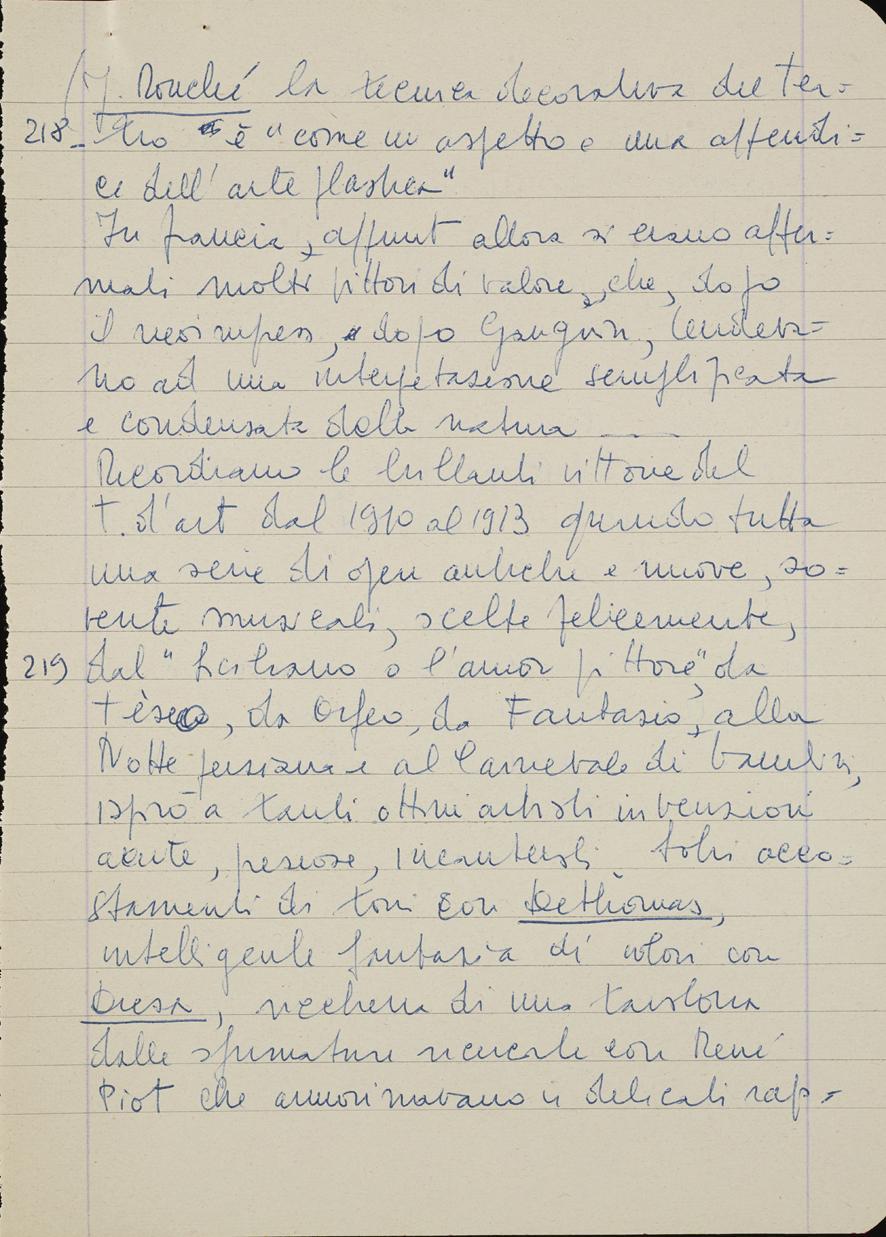 (J. Rouché la tecnica decorativa del tea=
218_ tro è "come un aspetto e una appendi=
ce dell'arte plastica"
In Francia, appunt allora si erano affer=
mati molti pittori di valore, che, dopo
il neoimpress, dopo Gauguin, tendeva=
no ad una interpetazione semplificata
e condensata della natura ___
Ricordiamo le brillanti vittorie del
T. d'art dal 1910 al 1913 quando tutta
una serie di opere antiche e nuove, so=
vente musicali, scelte felicemente,
219) dal "Siciliano o l'amor pittore", da
Tèseo, da Orfeo, da Fantasio, alla
Notte persiana e al Carnevale di bambini,
ispirò a tanti ottimi artisti invenzioni
acute, preziose, incantevoli Sobri acco=
stamenti di toni con Dethomas,
intelligente fantasia di colori con
Dresa, ricchezza di una tavolozza
dalle sfumature ricercate con René
Piot che armonizzavano i delicati rap=